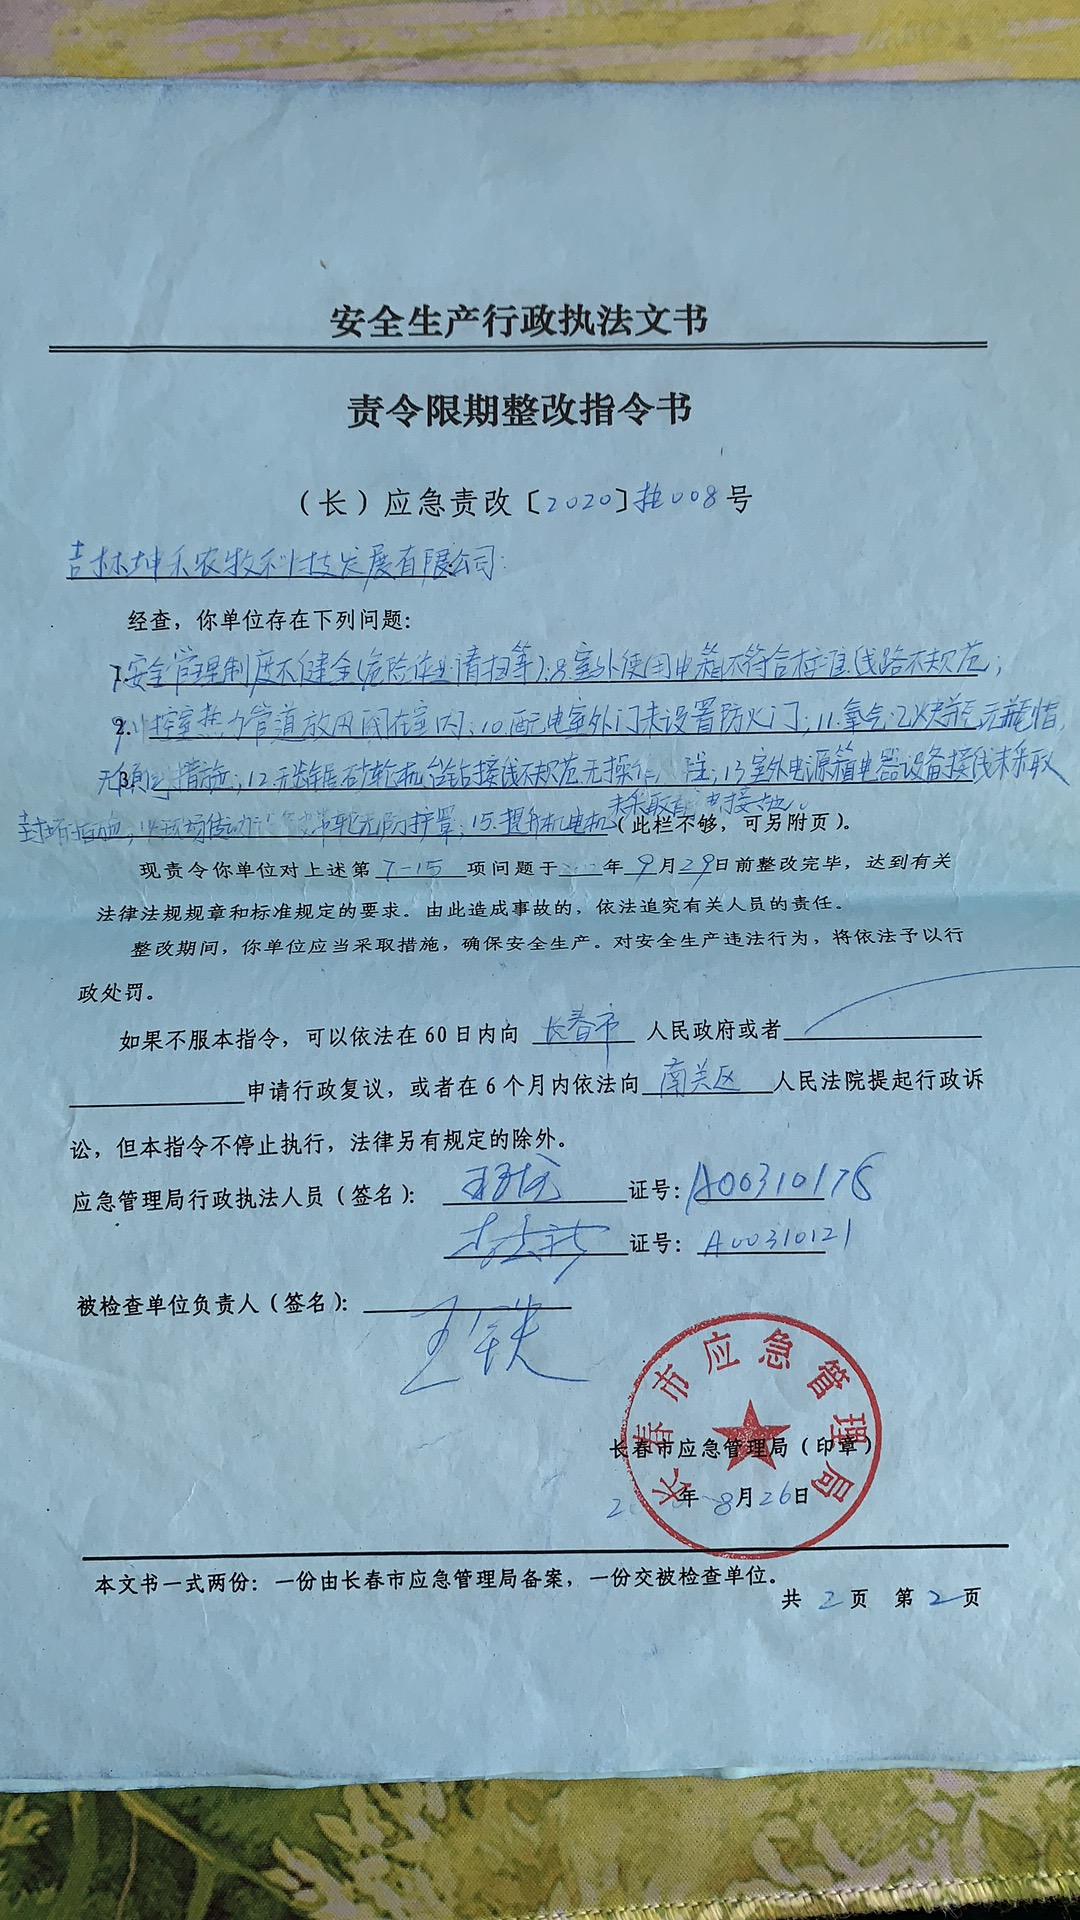 安全生产行政执法文书
责令限期整改指令书
（长）应急责改〔2020〕执008号
吉林坤禾农牧科技发展有限公司：
经查，你单位存在下列问题：
7.安全管理制度不健全（危险作业请扫等）；8.室外使用电箱不符合标准线路不规范；
9.控室热力管道放风阀在室内；10.配电室外门未设置防火门；11.氧气、乙炔无瓶帽，
无倾倒措施；12.无齿锯砂轮机台钻接线不规范无操作；13室外电源箱电器设备接线未采取
封堵措施；14现场传动带轮无防护罩；15.提升机电机未采取接地。（此栏不够，可另附页）。
现责令你单位对上述第7-15项问题于年9月29日前整改完毕，达到有关
法律法规规章和标准规定的要求。由此造成事故的，依法追究有关人员的责任。
整改期间，你单位应当采取措施，确保安全生产。对安全生产违法行为，将依法予以行
政处罚。
如果不服本指令，可以依法在60日内向 长春市 人民政府或者
申请行政复议，或者在6个月内依法向 南关区 人民法院提起行政诉
讼，但本指令不停止执行，法律另有规定的除外。
应急管理局行政执法人员（签名）： 证号：A00310178
证号：A00310121
被检查单位负责人（签名）：王铁
长春市应急管理局
长春市应急管理局（印章）
年8月26日
本文书一式两份：一份由长春市应急管理局备案，一份交被检查单位。
共 2 页 第 2 页